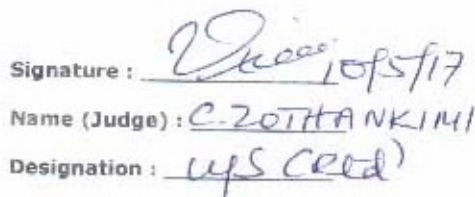 Signature : 10/5/17
Name (Judge) : C. ZOTHANKIMI
Designation : U/S